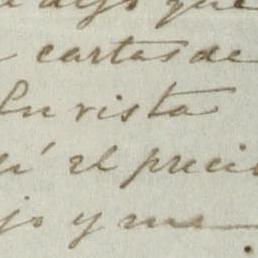 dijo que
cartas de
En vista
el preci
jo y me